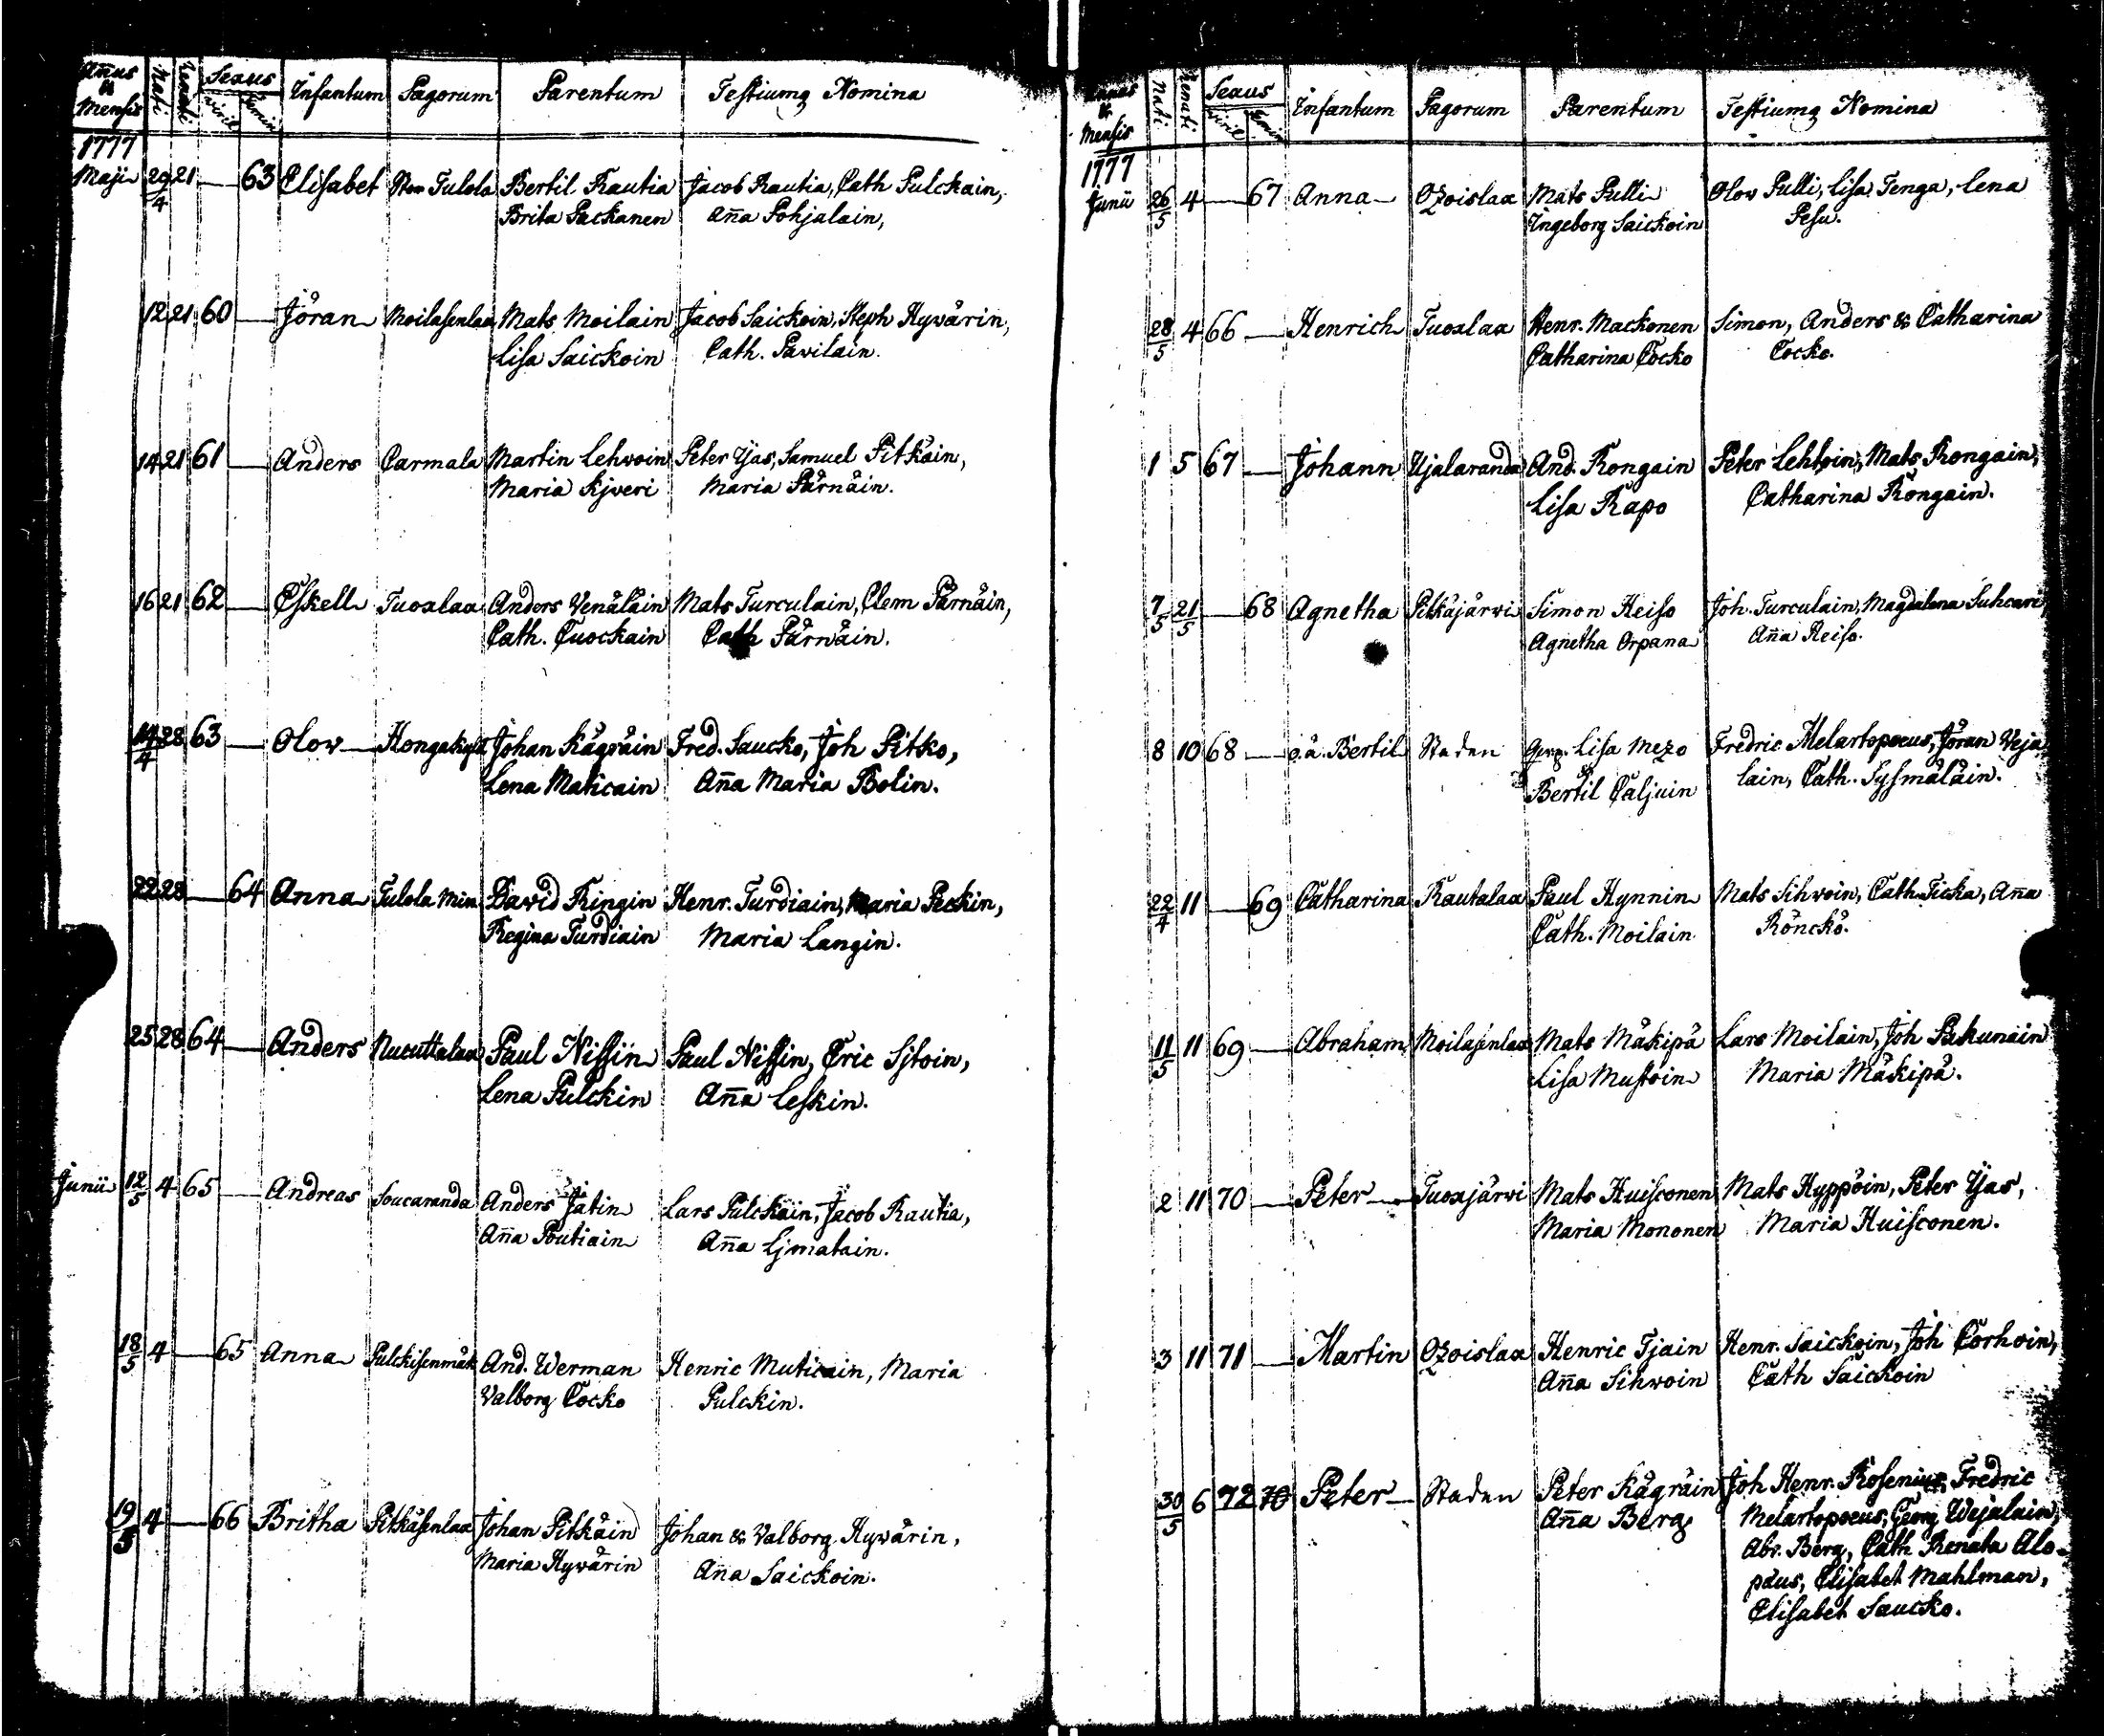 Añus & Mensis Nati Renati Sexus viril femin Infantum Pagorum Parentum Testiumq Nomina
1777
Maji 29/4 21 — 63 Elisabet Stor Tulola Bertil Rautia Jacob Rautia, Cath Pulckain,
Brita Packanen Aña Pohjalain,
12 21 60 — Jöran Moilasenlax Mats Moilain Jacob Saickoin, Steph Hyvärin,
Lisa Saickoin Cath. Pavilain.
14 21 61 — Anders Carmala Martin Lehwoin Peter Yjas, Samuel Pitkäin,
Maria Kjveri Maria Pärnäin.
16 21 62 — Eskell Tuoxlax Anders Venäläin Mats Turculain, Clem Pärnäin,
Cath. Cuockain Cath Pärnäin.
14/4 28 63 — Olow Hongakylä Johan Kägräin Fred. Saucko, Joh Pitko,
Lena Maticain Aña Maria Bolin.
22 28 — 64 Anna Tulola Min David Ringin Henr. Turdiain, Maria Peckin,
Regina Turdiain Maria Langin.
25 28 64 — Anders Nucuttalax Paul Nissin Paul Nissin, Eric Sjtoin,
Lena Pulckin Aña Leskin.
Junii 12/5 4 65 — Andreas Soucaranda Anders Jätin Lars Pulckäin, Jacob Rautia,
Aña Poutiain Aña Ljmatain.
18/5 4 — 65 Anna Pulckisenmäk And. Werman Henric Muticain, Maria
Valborg Cocko Pulckin.
19/5 4 — 66 Britha Pitkäsenlax Johan Pitkäin Johan & Valborg Hyvärin,
Maria Hyvärin Ana Saickoin.
Annus & Mensis Nati Renati Sexus viril femin Infantum Pagorum Parentum Testiumq Nomina
1777
Junii 26/5 4 — 67 Anna Ozoislax Mats Pulli Olov Pulli, Lisa Tenga, Lena
Ingeborg Saickoin Pesu.
28/5 4 66 — Henrich Tuoxlax Henr. Mackonen Simon, Anders & Catharina
Catharina Cocko Cocko.
1 5 67 — Johann Ujalaranda And. Rongain Peter Lehtoin, Mats Rongain,
Lisa Rapo Catharina Rongain.
7/5 21/5 — 68 Agnetha Pitkäjärwi Simon Heiso Joh. Turculain, Magdalena Suhcari
Agnetha Orpana Aña Reiso.
8 10 68 — o.ä. Bertil Staden Lisa Mezo Fredric Melartopoeus, Jöran Veja
Bertil Caljuin lain, Cath. Sysmäläin.
22/4 11 — 69 Catharina Rautalax Paul Hynnin Mats Sihvoin, Cath Ticka, Aña
Cath. Moilain Röncko.
11/5 11 69 — Abraham Moilasenlax Mats Mäkipä Lars Moilain, Joh Pakunain
Lisa Mustoin Maria Mäkipä.
2 11 70 — Peter Tuoxjärwi Mats Huisconen Mats Hyppöin, Peter Yjas,
Maria Mononen Maria Huisconen.
3 11 71 — Martin Ozoislax Henric Tjain Henr. Saickoin, Joh Corhoin,
Aña Sihwoin Cath Saickoin
30/5 6 72 70 Peter Staden Peter Kägräin Joh Henr. Rosenius, Fredric
Aña Berg Melartopoeus, Georg Wejalain,
Abr. Berg, Cath Renata Alo-
päus, Elisabet Mahlman,
Elisabet Saucko.